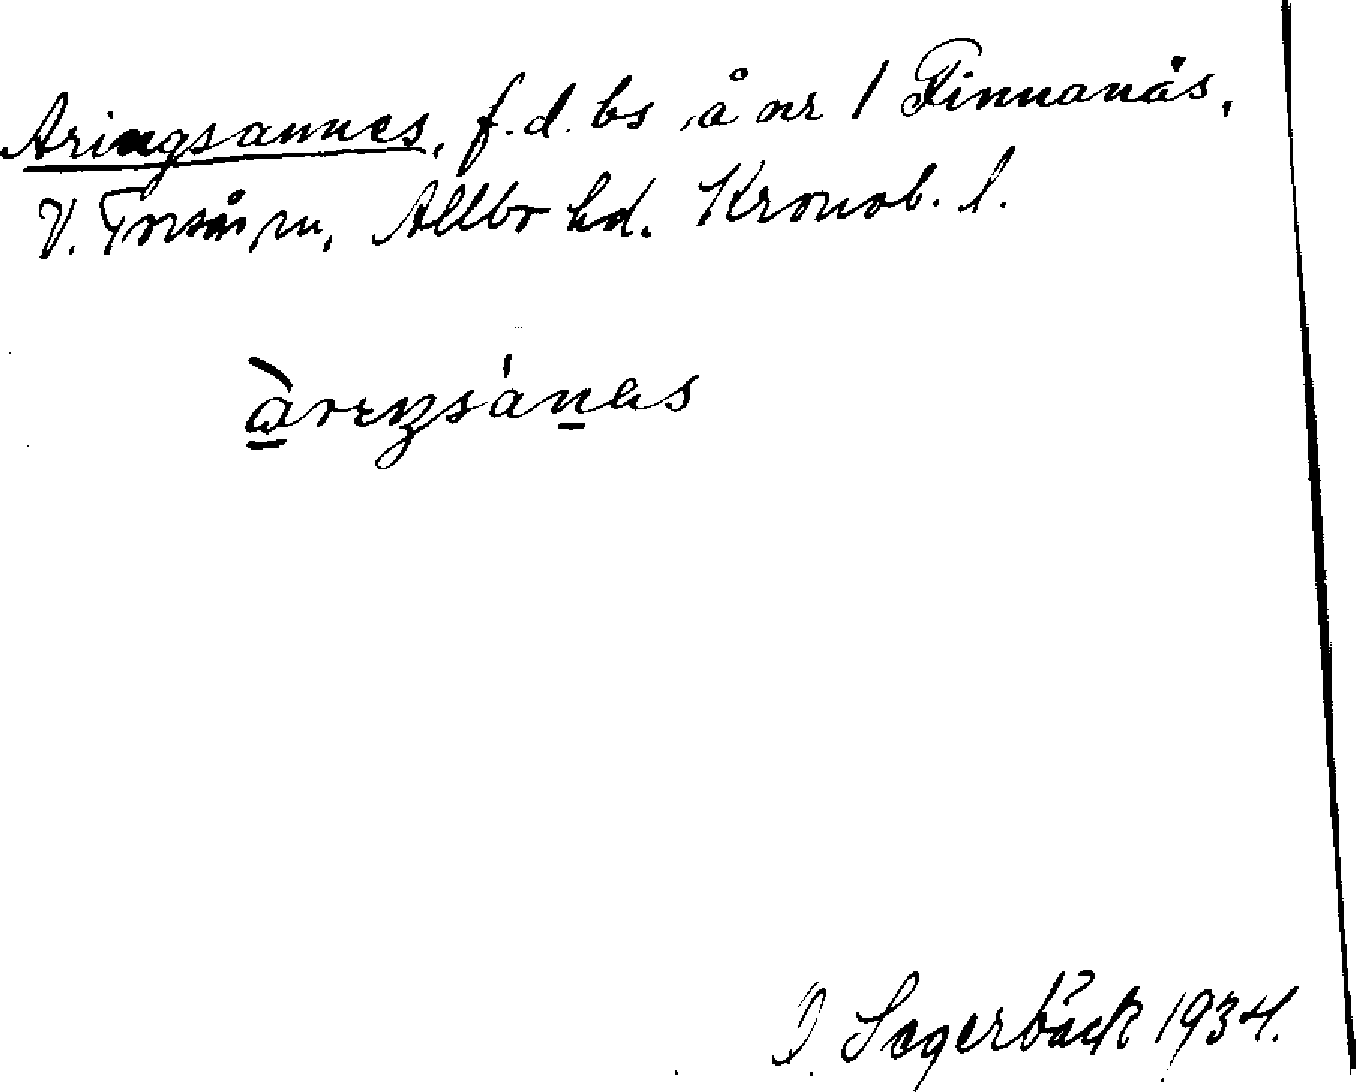 Aringsannes, f.d. bs å nr 1 Finnanäs,
V. Torsås sn, Allbo hd. Kronob. l.
àrıŋsánas
J. Segerbäck 1934.